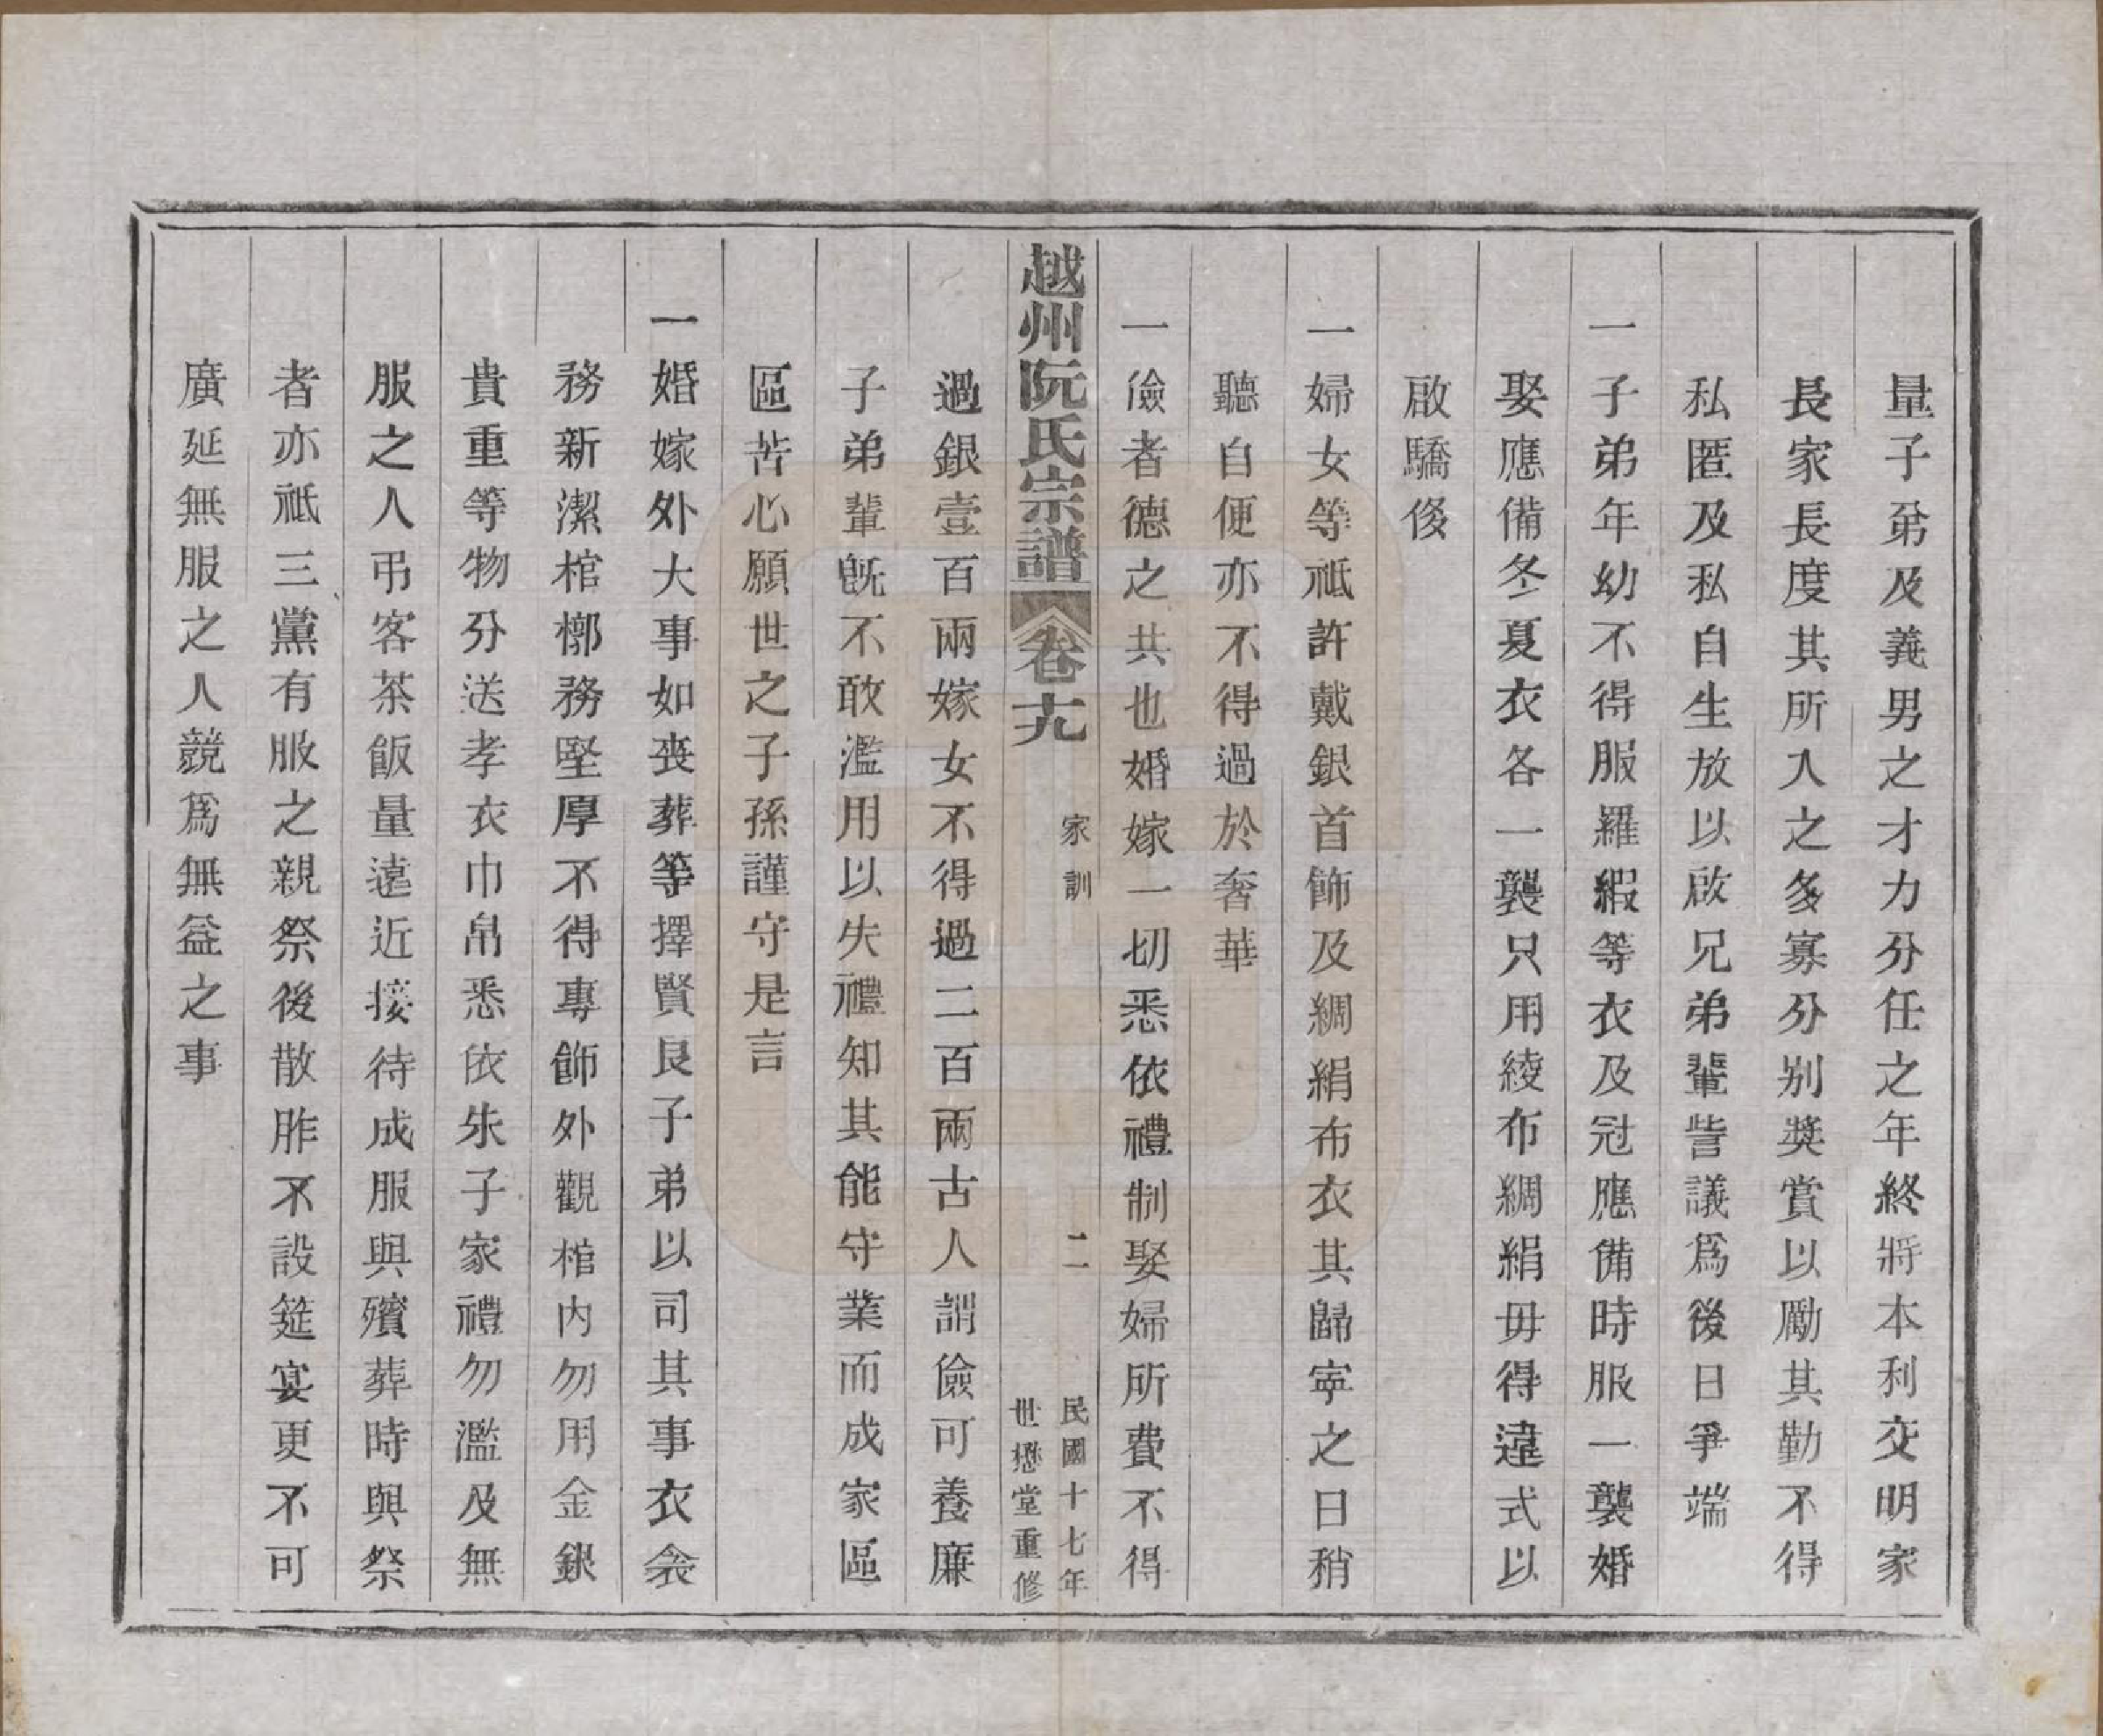 量子弟及義男之才力分任之年終將本利交明家
長家長度其所入之多寡分别奬賞以勵其勤不得
私匿及私自生放以啟兄弟輩訾議爲後日爭端
一子弟年幼不得服羅緞等衣及冠應備時服一襲婚
娶應備冬夏衣各一襲只用綾布綢絹毋得違式以
啟驕侈
一婦女等祗許戴銀首飾及綢絹布衣其歸寧之日稍
聽自便亦不得過於奢華
一儉者德之共也婚嫁一切悉依禮制娶婦所費不得
越州阮氏宗譜 卷十九 家訓 二 民國十七年
世懋堂重修
過銀壹百兩嫁女不得過二百兩古人謂儉可養廉
子弟輩旣不敢濫用以失禮知其能守業而成家區
區苦心願世之子孫謹守是言
一婚嫁外大事如喪葬等擇賢良子弟以司其事衣衾
務新潔棺槨務堅厚不得專飾外觀棺内勿用金銀
貴重等物分送孝衣巾帛悉依朱子家禮勿濫及無
服之人弔客茶飯量遠近接待成服與殯葬時與祭
者亦祗三黨有服之親祭後散胙不設筵宴更不可
廣延無服之人競爲無益之事